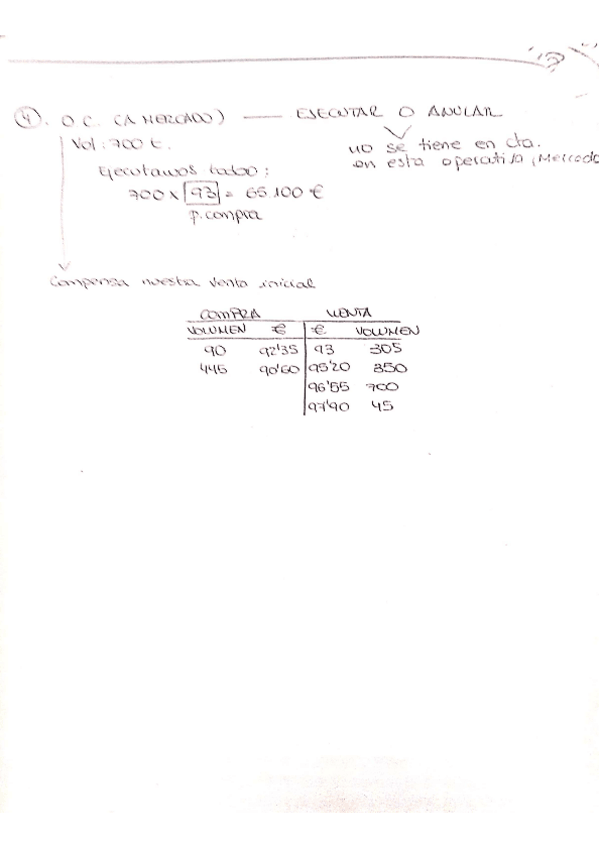 4. O C. (A MERCADO) —— EJECUTAR O ANULAR
Vol: 700 t.
no se tiene en cta.
en esta operativa, Mercado
Ejecutamos todo:
700 x 93 = 65.100 €
p. compra
Compensa nuestra venta inicial
COMPRA VENTA
VOLUMEN € € VOLUMEN
90 92'35 93 305
445 90'60 95'20 350
96'55 700
97'90 45